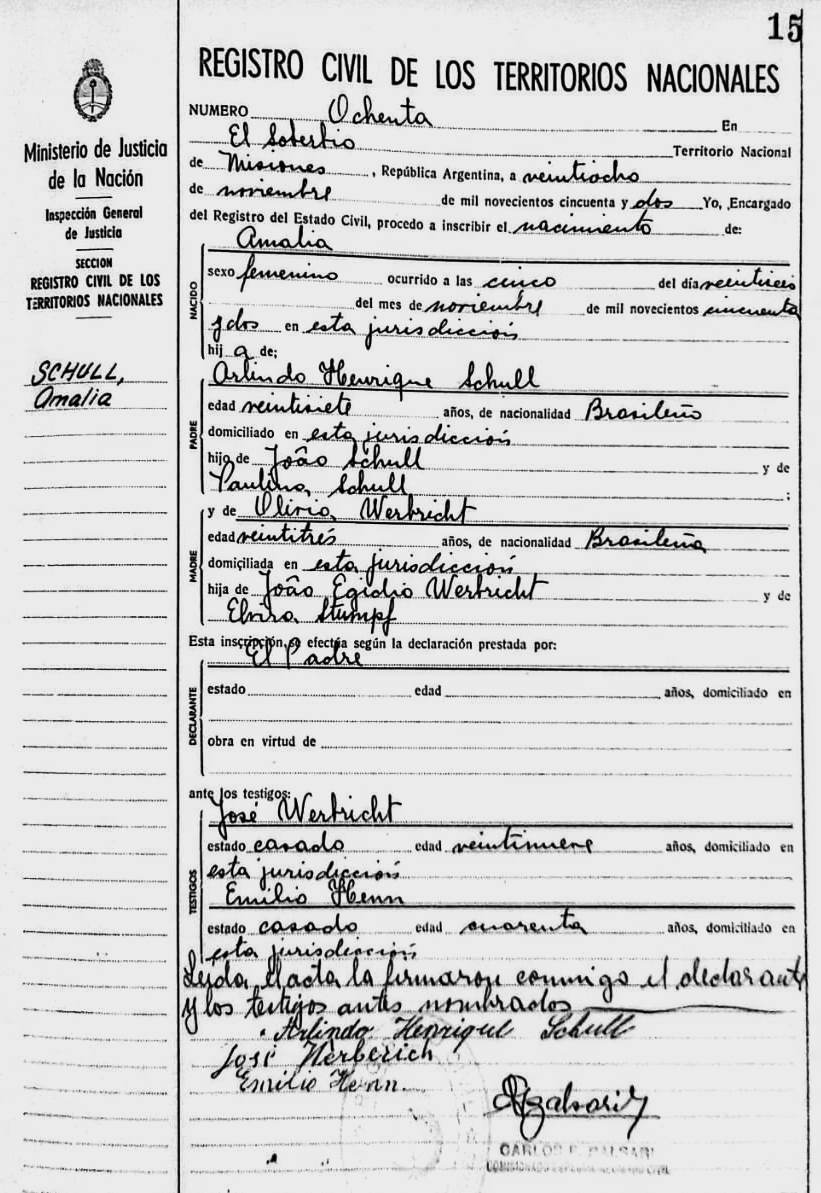 15
REGISTRO CIVIL DE LOS TERRITORIOS NACIONALES
Ministerio de Justicia
de la Nación
Inspección General
de Justicia
SECCION
REGISTRO CIVIL DE LOS
TERRITORIOS NACIONALES
SCHULL,
Amalia
NUMERO Ochenta En
El Soberbio Territorio Nacional
de Misiones, República Argentina, a veintiocho
de noviembre de mil novecientos cincuenta y dos Yo, Encargado
del Registro del Estado Civil, procedo a inscribir el nacimiento de:
Amalia
NACIDO
sexo femenino ocurrido a las cinco del día
del mes de noviembre de mil novecientos cincuenta
y dos en esta jurisdicción
hija de;
PADRE
Arlindo Henrique Schull
edad veintisiete años, de nacionalidad Brasileño
domiciliado en esta jurisdicción
hijo de João Schull y de
Paulina Schull ;
MADRE
y de Olivia Werbricht
edad veintitrés años, de nacionalidad Brasileña
domiciliada en esta jurisdicción
hija de João Egidio Werbricht y de
Elvira Stumpf
Esta inscripción se efectúa según la declaración prestada por:
El Padre
DECLARANTE
estado edad años, domiciliado en
obra en virtud de
ante los testigos:
TESTIGOS
José Werbricht
estado casado edad veintinueve años, domiciliado en
esta jurisdicción
Emilio Henn
estado casado edad cuarenta años, domiciliado en
esta jurisdicción
Leida el acta la firmaron conmigo el declarante
y los testigos antes nombrados
Arlindo Henrique Schull
José Werberich
Emilio Henn.
CARLOS P.